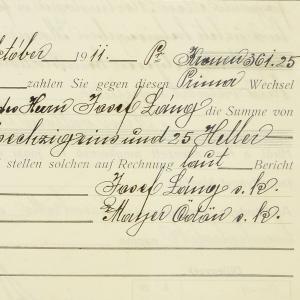 October 1911. Pr Kronen 361.25
zahlen Sie gegen diesen Prima Wechsel
Herrn Josef Lang die Summe von
sechzigeins und 25 Heller
stellen solchen auf Rechnung laut Bericht
Josef Lang s.k.
Mayer Ödön s.k.